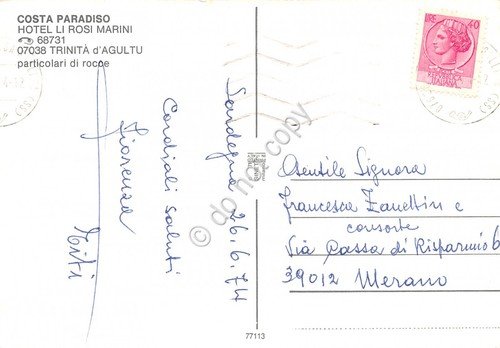 COSTA PARADISO
HOTEL LI ROSI MARINI
68731
07038 TRINITÀ d'AGULTU
particolari di rocce
Sardegna 26.6.74
Cordiali saluti
Fiorenza
Titi
LIRE 40
ITALIANA
do not copy
Gentile Signora
Francesca Zanettin e
consorte
Via Cassa di Risparmio 6
39012 Merano
77113